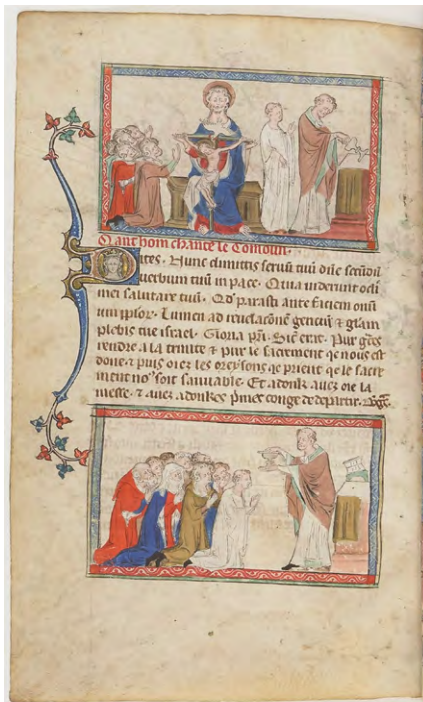 Quant hom chante le Comoun.
Dites. Nunc dimittis seruu tuu dne secudu
uerbium tuu in pace. Quia uiderunt oculi
mei salutare tuu. Qd parasti ante faciem omniu
Lumen ad reuelacone genciu & glam
plebis tue israel. Gloria pri. Sic erat. Pur gces
rendre a la trinite & pur le sacrement qe nous est
done. & puis oiez les oreysons qe prient qe le sacre
ment no soit sauuable. Et adonk auez oie la
messe. & auez adonkes conge de departir.